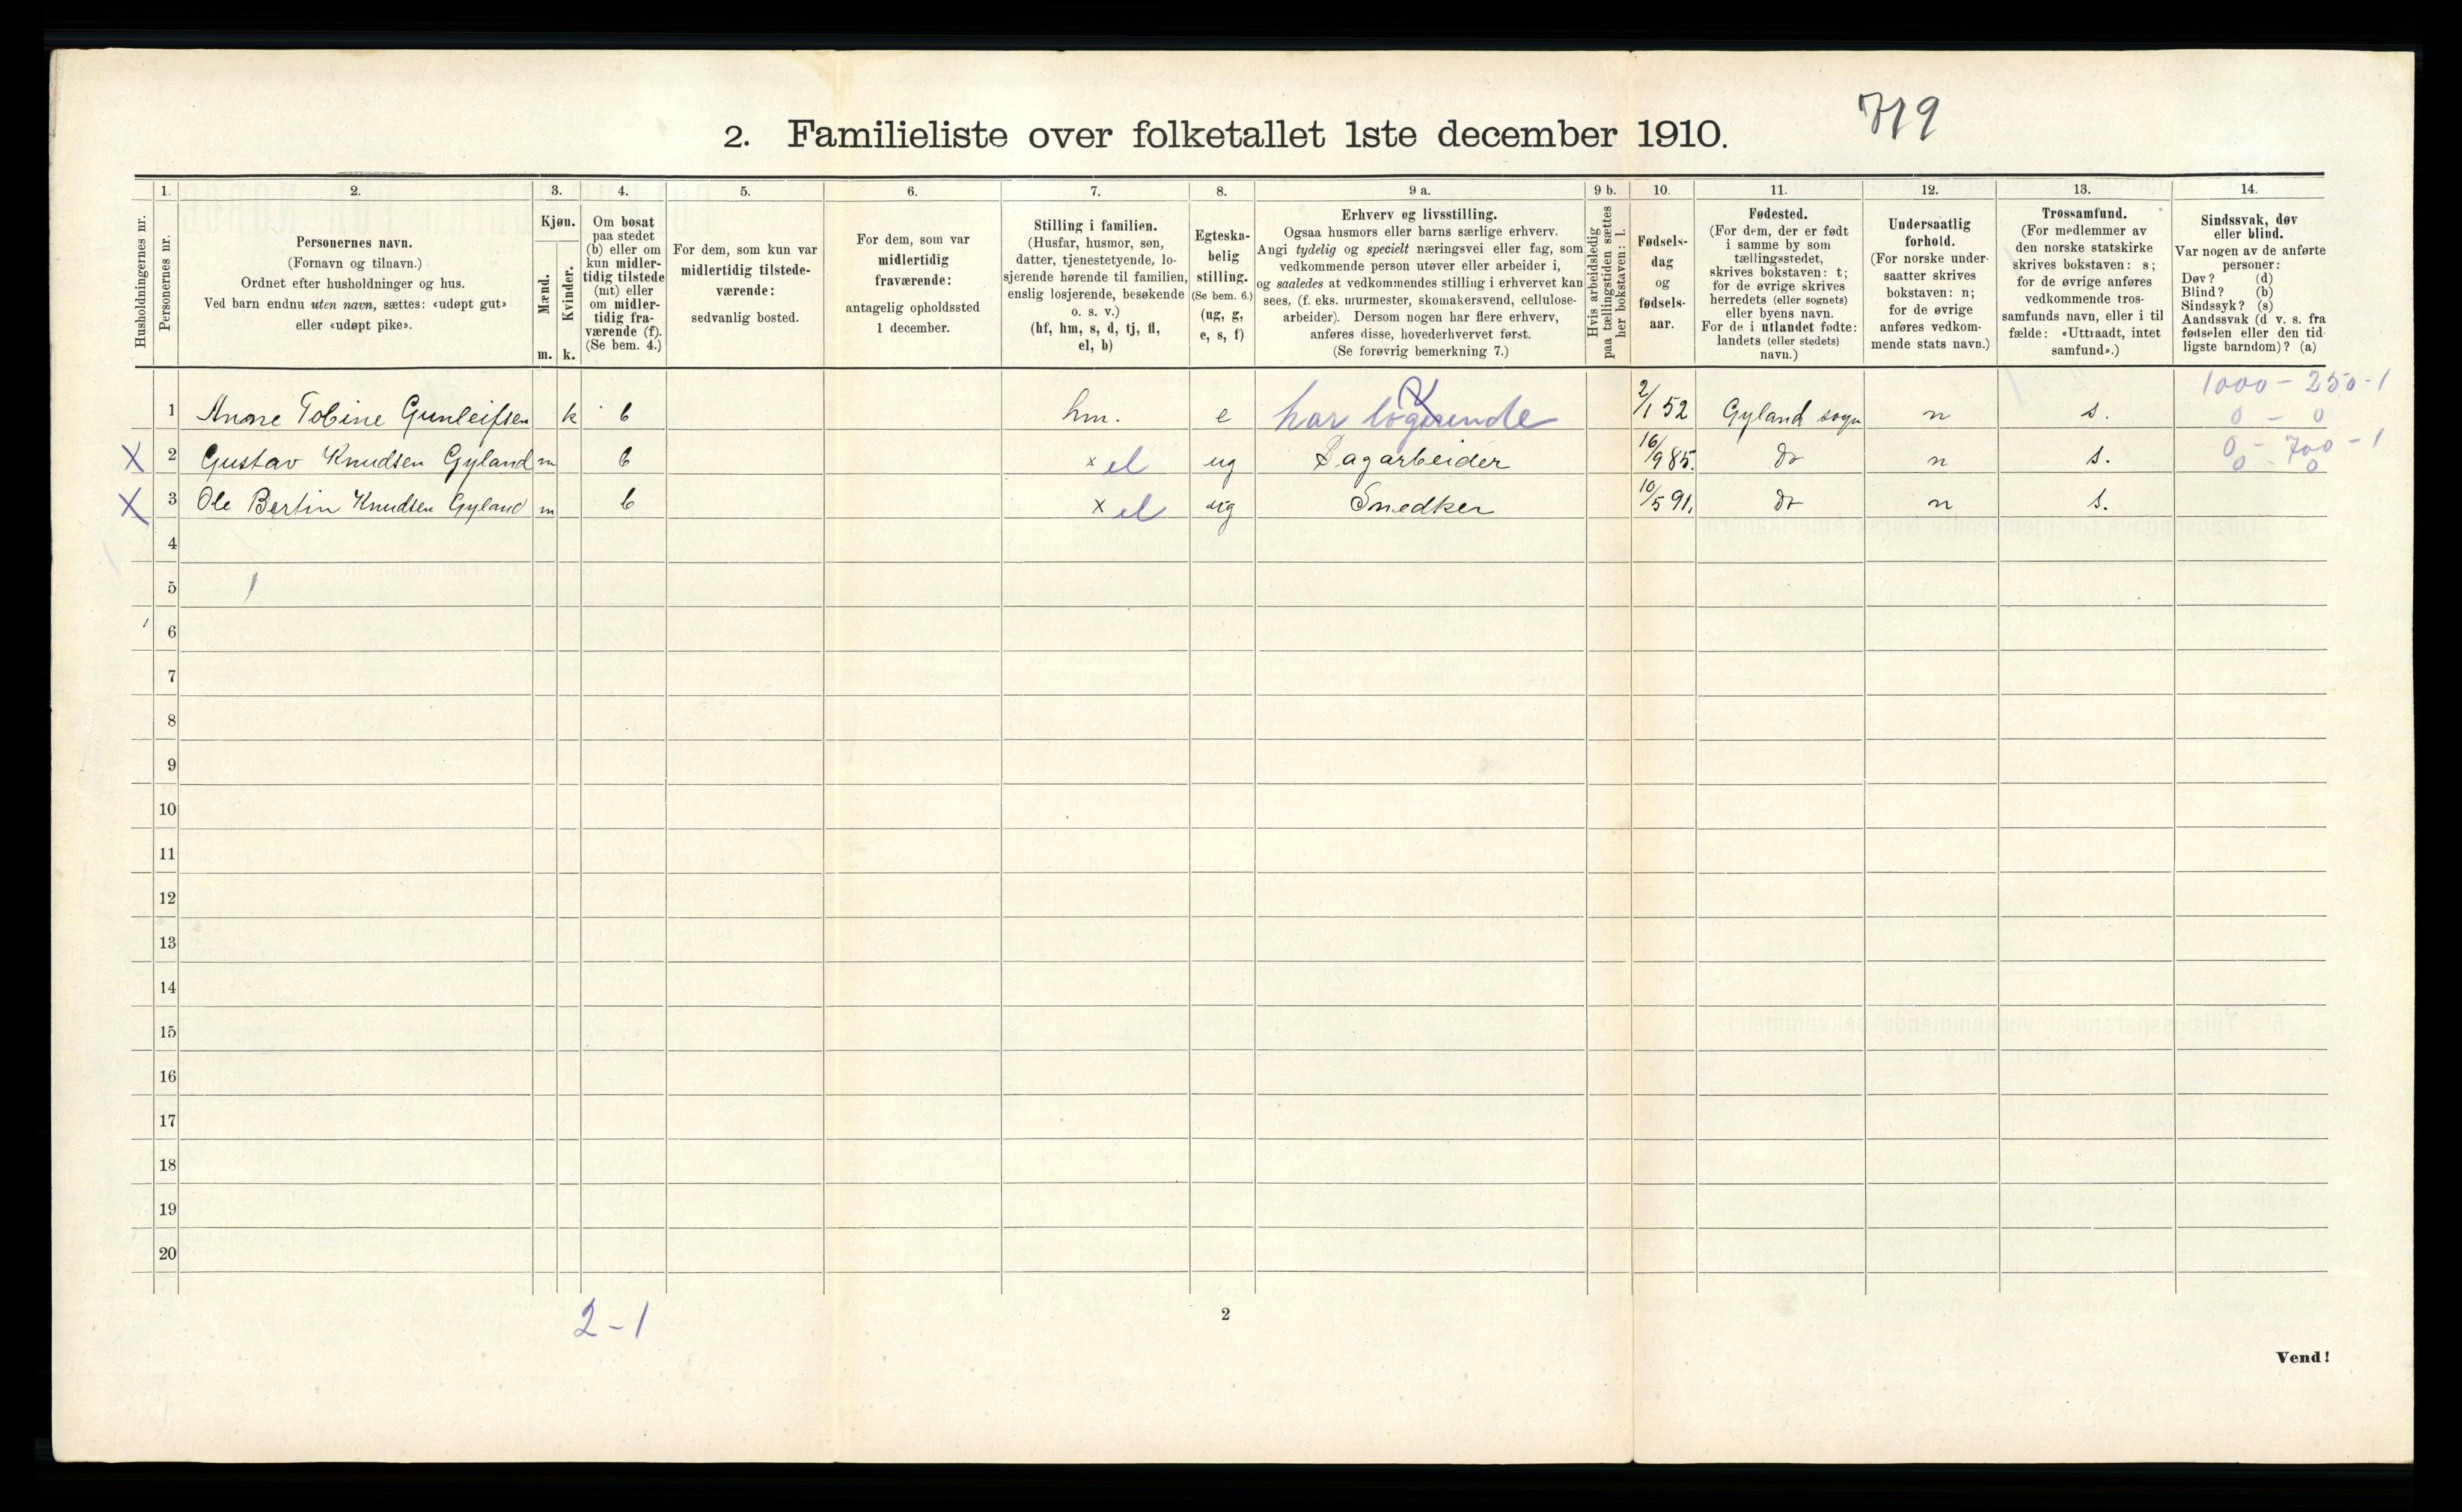 719
2. Familieliste over folketallet 1ste december 1910.
1. 2. 3. 4. 5. 6. 7. 8. 9 a. 9 b. 10. 11. 12. 13. 14.
Husholdningernes nr.
Personernes nr.
Personernes navn.
(Fornavn og tilnavn.)
Ordnet efter husholdninger og hus.
Ved barn endnu uten navn, sættes: «udøpt gut»
eller «udøpt pike».
Kjøn.
Mænd.
Kvinder.
m. k.
Om bosat
paa stedet
(b) eller om
kun midler-
tidig tilstede
(mt) eller
om midler-
tidig fra-
værende (f).
(Se bem. 4.)
For dem, som kun var
midlertidig tilstede-
værende:
sedvanlig bosted.
For dem, som var
midlertidig
fraværende:
antagelig opholdssted
1 december.
Stilling i familien.
(Husfar, husmor, søn,
datter, tjenestetyende, lo-
sjerende hørende til familien,
enslig losjerende, besøkende
o. s. v.)
(hf, hm, s, d, tj, fl,
el, b)
Egteska-
belig
stilling.
(Se bem. 6.)
(ug, g,
e, s, f)
Erhverv og livsstilling.
Ogsaa husmors eller barns særlige erhverv.
Angi tydelig og specielt næringsvei eller fag, som
vedkommende person utøver eller arbeider i,
og saaledes at vedkommendes stilling i erhvervet kan
sees, (f. eks. murmester, skomakersvend, cellulose-
arbeider). Dersom nogen har flere erhverv,
anføres disse, hovederhvervet først.
(Se forøvrig bemerkning 7.)
Hvis arbeidsledig
paa tællingstiden sættes
her bokstaven: l.
Fødsels-
dag
og
fødsels-
aar.
Fødested.
(For dem, der er født
i samme by som
tællingsstedet,
skrives bokstaven: t;
for de øvrige skrives
herredets (eller sognets)
eller byens navn.
For de i utlandet fødte:
landets (eller stedets)
navn.)
Undersaatlig
forhold.
(For norske under-
saatter skrives
bokstaven: n;
for de øvrige
anføres vedkom-
mende stats navn.)
Trossamfund.
(For medlemmer av
den norske statskirke
skrives bokstaven: s;
for de øvrige anføres
vedkommende tros-
samfunds navn, eller i til
fælde: «Uttraadt, intet
samfund».)
Sindssvak, døv
eller blind.
Var nogen av de anførte
personer:
Døv? (d)
Blind? (b)
Sindssyk? (s)
Aandssvak (d v. s. fra
fødselen eller den tid-
ligste barndom)? (a)
1000 - 250 - 1
1 Anne Tobine Gunleifsen k b hm. e har logerende 2/1 52 Gyland sogn n s. 0 - 0
X 2 Gustav Knudsen Gyland m b x el ug Dagarbeider 16/9 85. do n s. 0 - 700 - 1
0 - 0
X 3 Ole Bertin Knudsen Gyland m b x el ug Snedker 10/5 91. do n s.
4
5
6
7
8
9
10
11
12
13
14
15
16
17
18
19
20
2-1
2
Vend!